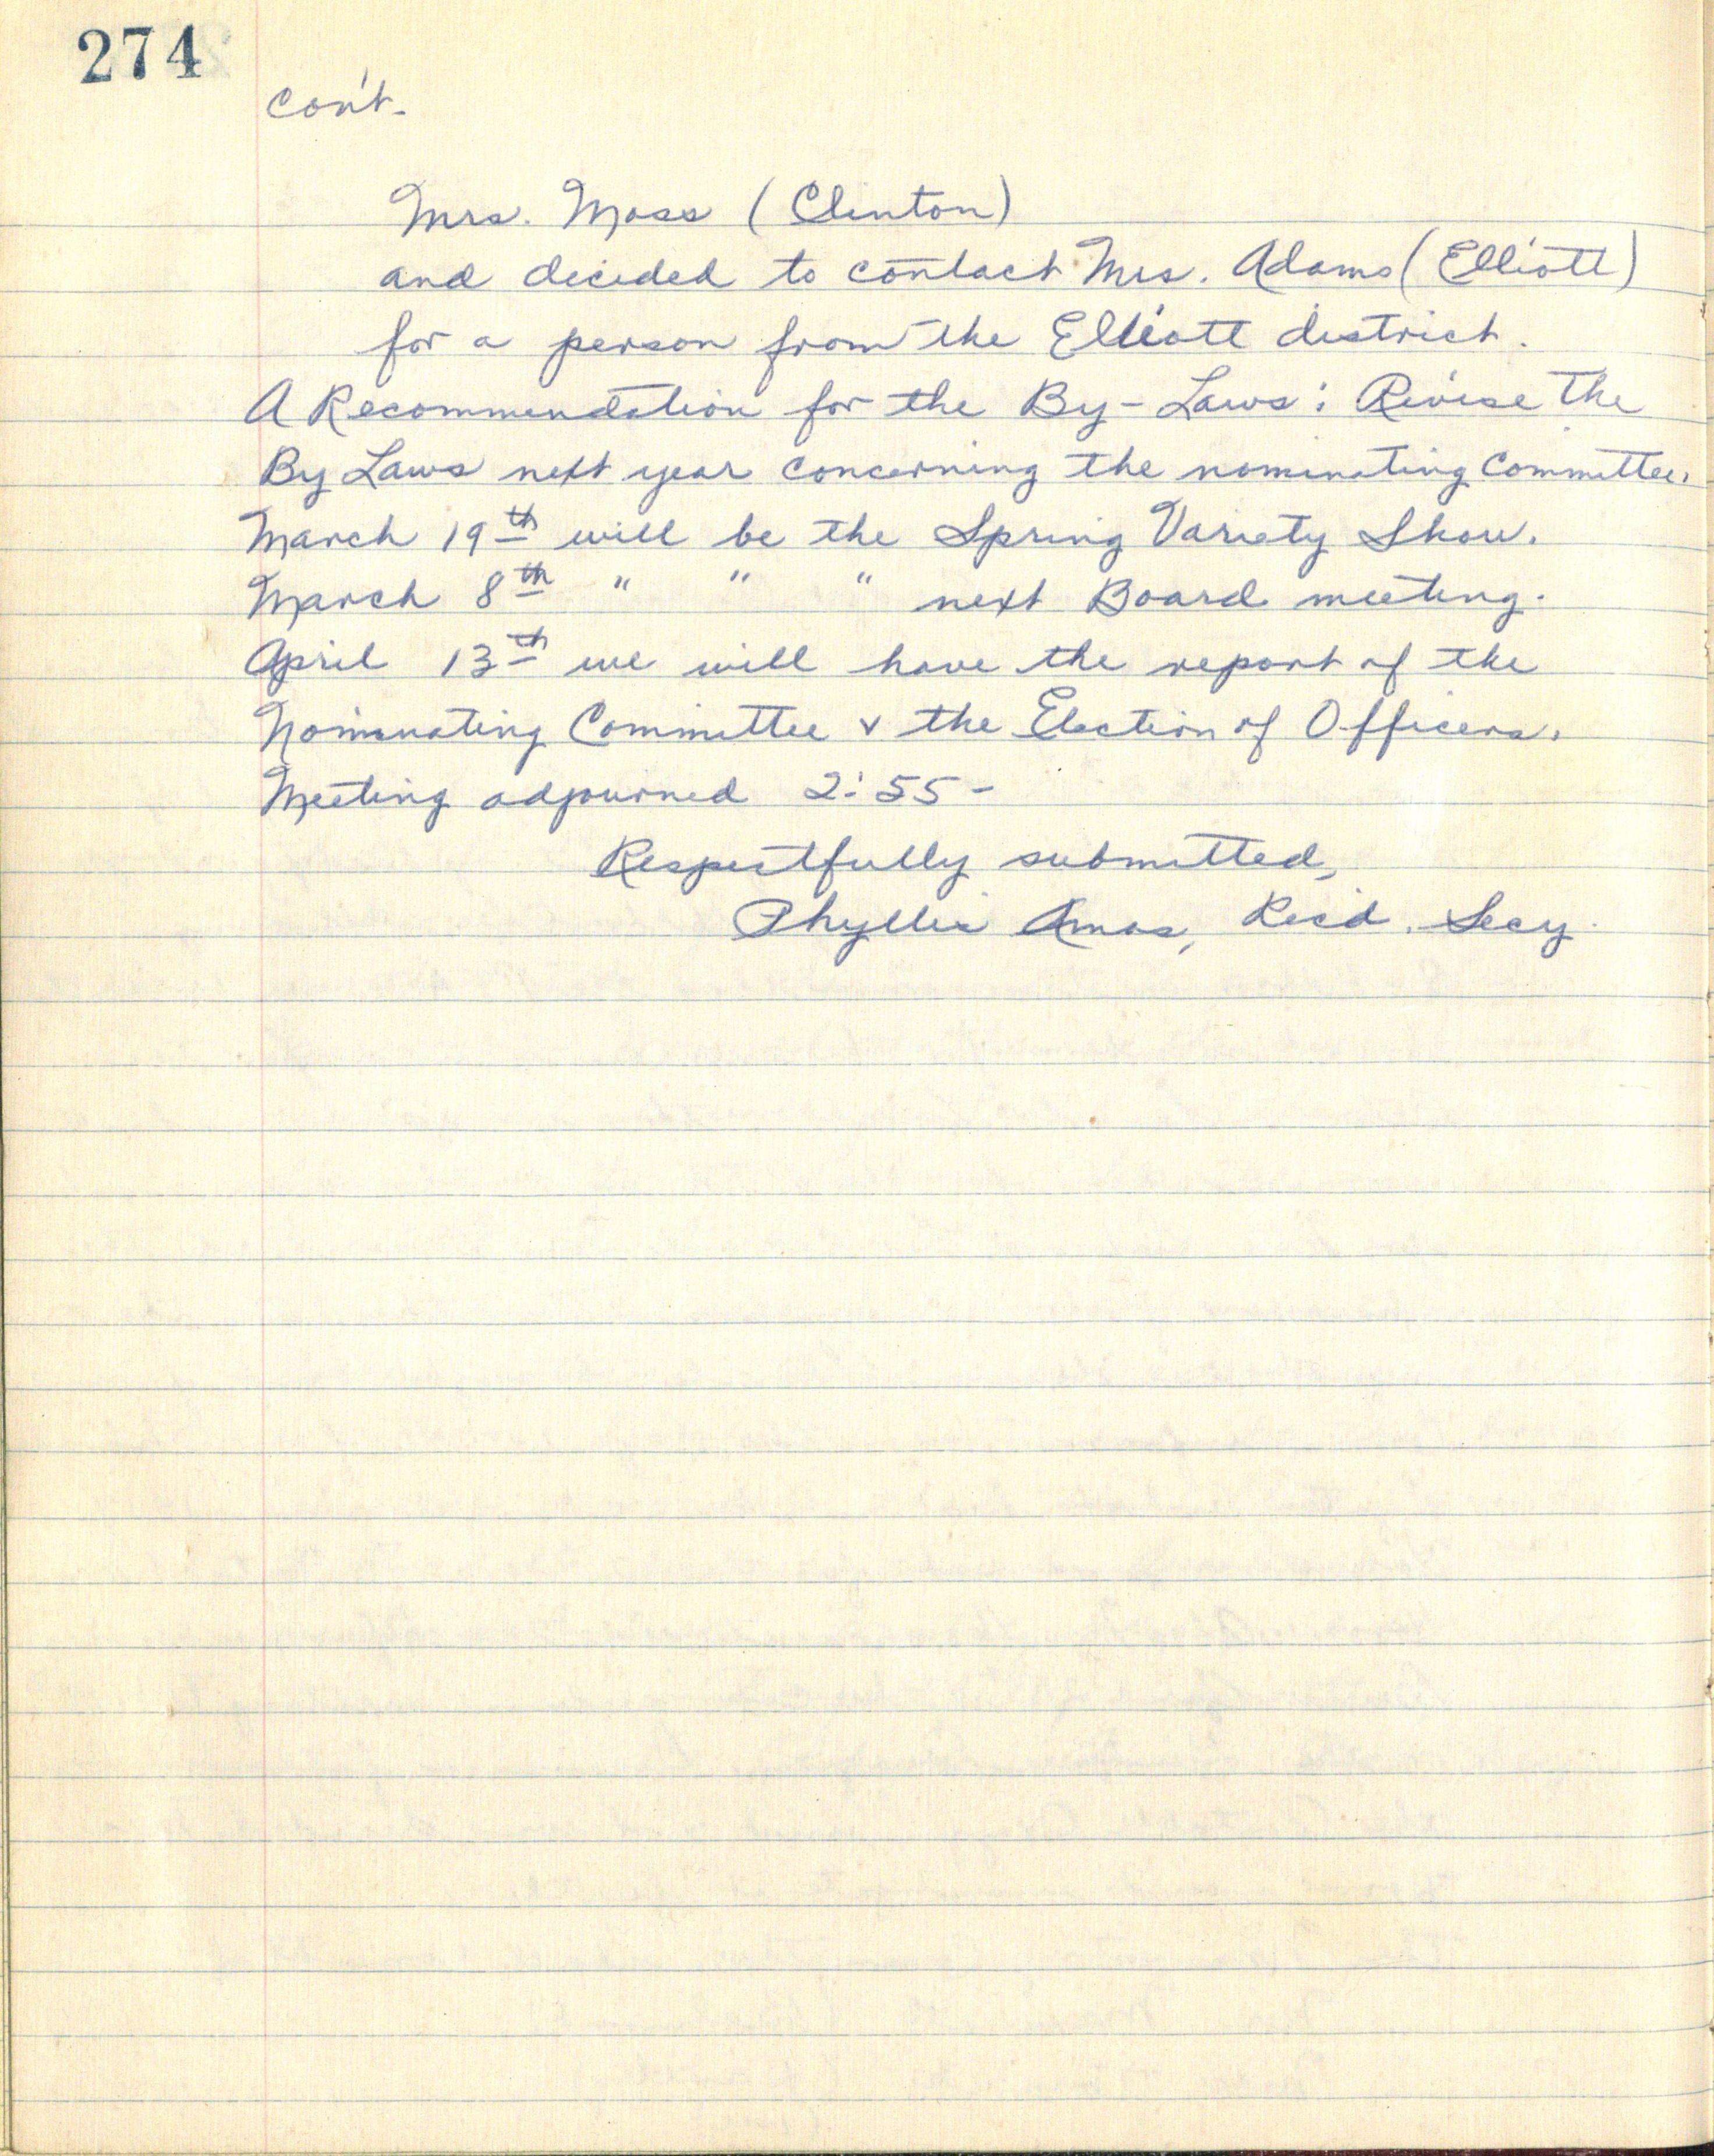 274
con't.
Mrs. Moss (Clinton)
and decided to contact Mrs. Adams (Elliott)
for a person from the Elliott district.
A Recommendation for the By-Laws: Revise the
By Laws next year concerning the nominating Committee.
March 19th will be the Spring Variety Show.
March 8th " " " next Board meeting.
April 13th we will have the report of the
Nominating Committee & the Election of Officers.
Meeting adjourned 2:55-
Respectfully submitted,
Phyllis Amos, Rec'd. Secy.